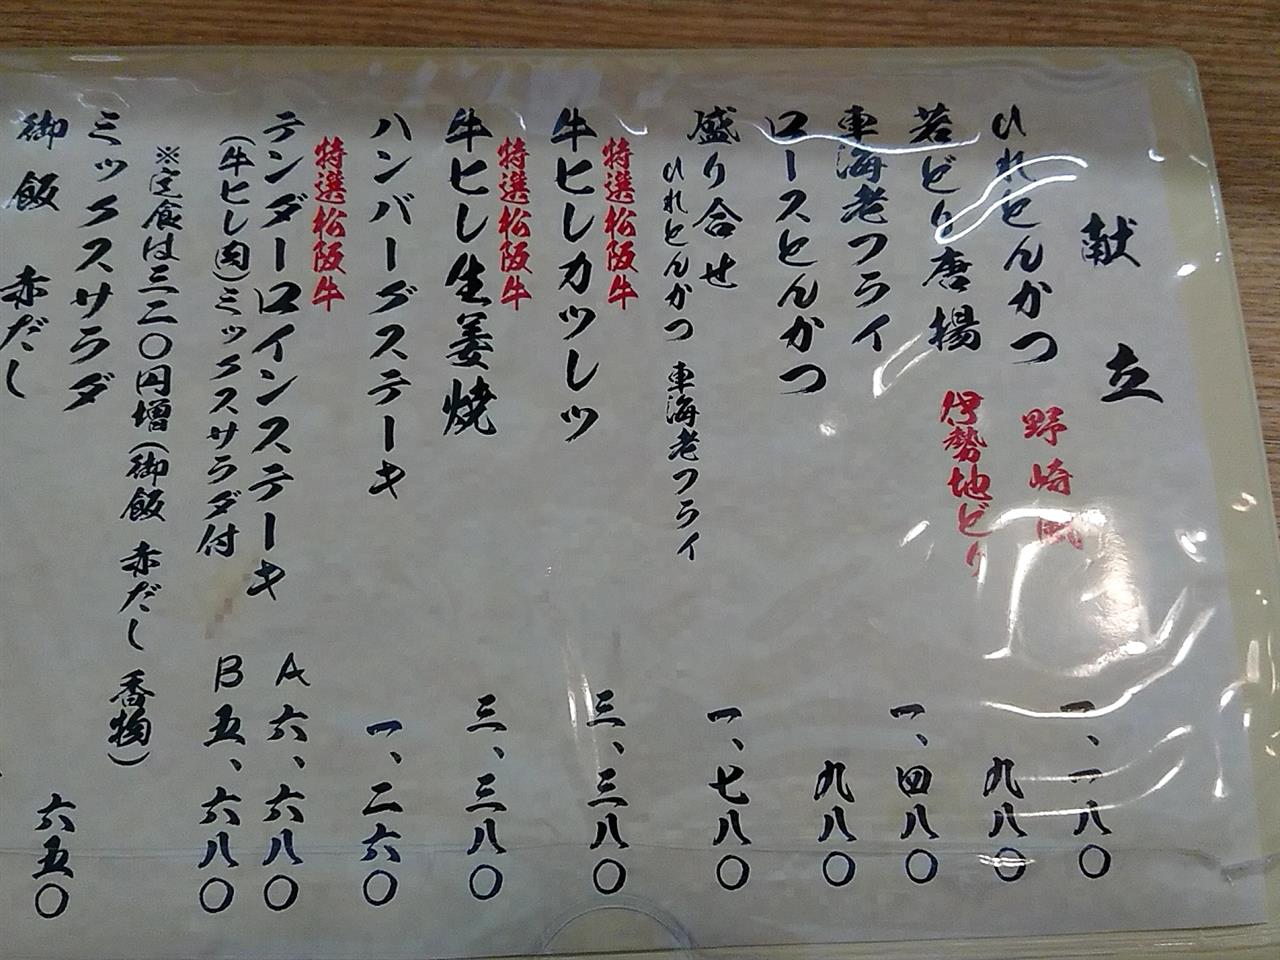 献立
ひれとんかつ 野崎風 一、一八〇
若どり唐揚 伊勢地どり 九八〇
車海老フライ 一、四八〇
ロースとんかつ 九八〇
盛り合せ 一、七八〇
ひれとんかつ 車海老フライ
特選松阪牛
牛ヒレカツレツ 三、三八〇
特選松阪牛
牛ヒレ生姜焼 三、三八〇
ハンバーグステーキ 一、二六〇
特選松阪牛
テンダーロインステーキ A 六、六八〇
(牛ヒレ肉)ミックスサラダ付 B 五、六八〇
※定食は三二〇円増(御飯 赤だし 香物)
ミックスサラダ 六五〇
御飯 赤だし